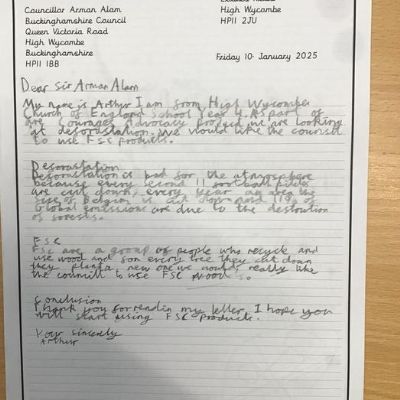 Councillor Arman Alam
Buckinghamshire Council
Queen Victoria Road
High Wycombe
Buckinghamshire
HP11 1BB
High Wycombe
HP11 2JU
Friday 10 January 2025
Dear Sir Arman Alam
My name is Arthur I am from High Wycombe
Church of England School Year 4. As part of
are Courages Advocacy Project we are looking
at deforestation. We would like the council
to use FSC products.
is bad for the atmosphere
because every second 11 foot ball
are cut down, every year an area the
size of Belgium is cut down and 11% of
Global emissions are due to the
of forests.
FSC
FSC are a group of people who recycle and
use wood and for every tree they cut down
they plant a new one we would really like
the council to use FSC
Conclusion
Thank you for reading my letter I hope you
will start using FSC products.
Your sincerely
Arthur